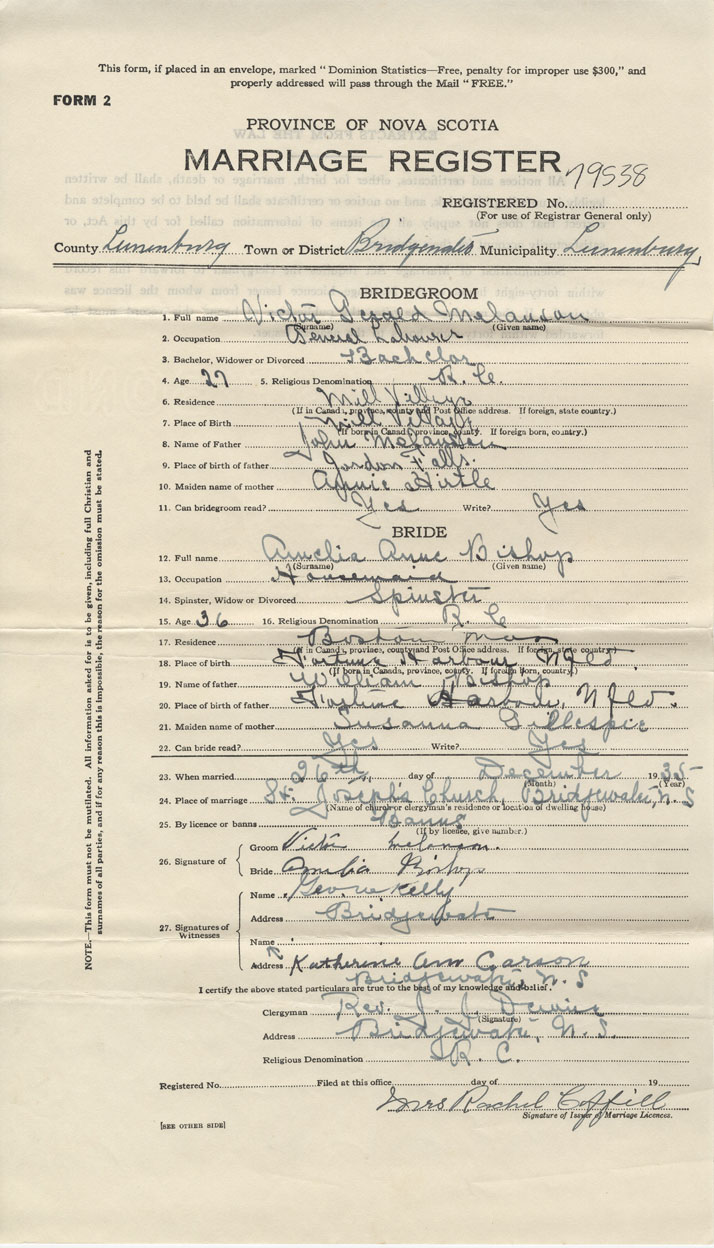 This form, if placed in an envelope, marked " Dominion Statistics—Free, penalty for improper use $300," and
properly addressed will pass through the Mail " FREE."
FORM 2
PROVINCE OF NOVA SCOTIA
MARRIAGE REGISTER
79538
REGISTERED No.
(For use of Registrar General only)
County Lunenburg Town or District Bridgewater Municipality Lunenburg
BRIDEGROOM
1. Full name Victor Gerald Melanson
(Surname) (Given name)
2. Occupation General Labourer
3. Bachelor, Widower or Divorced Bachelor
4. Age 27 5. Religious Denomination R. C.
6. Residence Mill Village
(If in Canada, province, county and Post Office address. If foreign, state country.)
7. Place of Birth Mill Village
(If born in Canada, province, county. If foreign born, country.)
8. Name of Father John Melanson
9. Place of birth of father Jordon Falls.
10. Maiden name of mother Annie Hirtle
11. Can bridegroom read? Yes Write? Yes
BRIDE
12. Full name Amelia Anne Bishop
(Surname) (Given name)
13. Occupation Housemaid
14. Spinster, Widow or Divorced Spinster
15. Age 36 16. Religious Denomination R. C
17. Residence Boston Mass
(If in Canada, province, county and Post Office address. If foreign, state country)
18. Place of birth Fortune Harbour Nfld
(If born in Canada, province, county. If foreign born, country.)
19. Name of father William Bishop
20. Place of birth of father Fortune Harbour, Nfld.
21. Maiden name of mother Susanna Gillespie
22. Can bride read? Yes Write? Yes
23. When married 26th, day of December 1935
(Month) (Year)
24. Place of marriage St. Joseph's Church, Bridgewater, N. S
(Name of church or clergyman's residence or location of dwelling house)
25. By licence or banns Banns
(If by licence, give number.)
26. Signature of
Groom Victor Melanson.
Bride Amelia Bishop
27. Signatures of Witnesses
Name George Kelly
Address Bridgewater
Name
Address Katherine Ann Carson
Bridgewater, N. S
I certify the above stated particulars are true to the best of my knowledge and belief.
Clergyman Rev. J. J.
(Signature)
Address Bridgewater, N. S.
Religious Denomination R. C.
Registered No. Filed at this office day of 19
Mrs Rachel Coffill
Signature of Issuer of Marriage Licences.
[SEE OTHER SIDE]
NOTE.—This form must not be mutilated. All information asked for is to be given, including full Christian and
surnames of all parties, and if for any reason this is impossible, the reason for the omission must be stated.